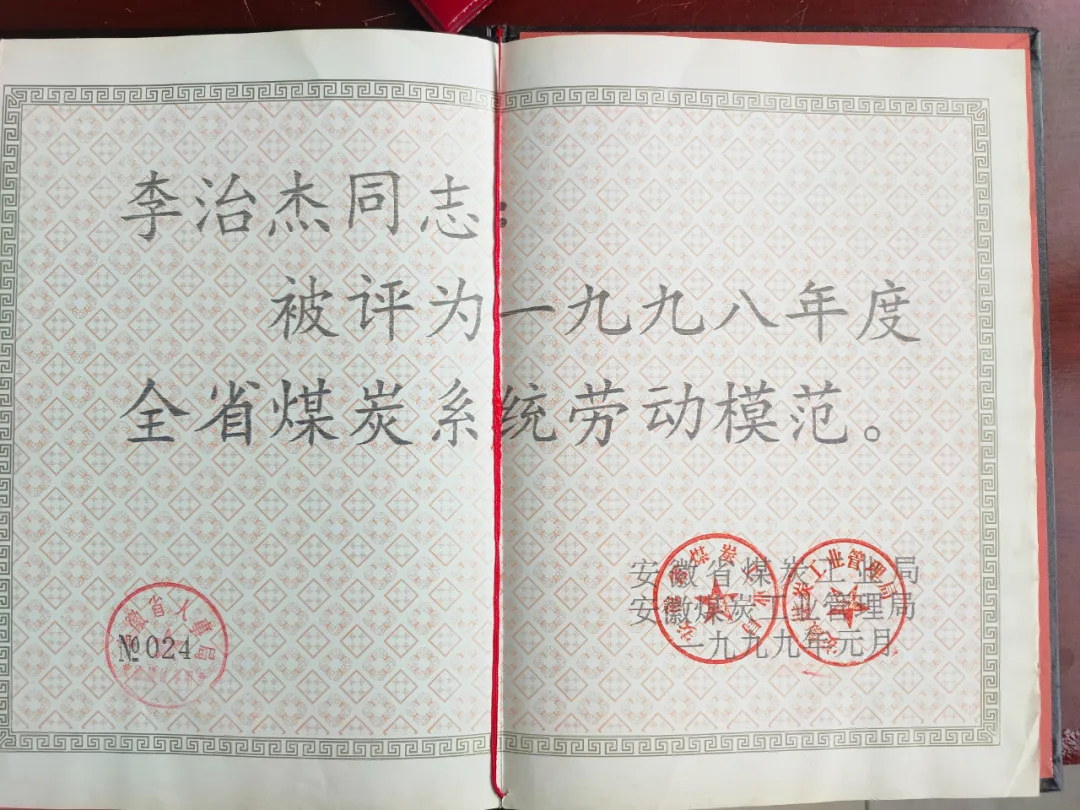 李治杰同志:
被评为一九九八年度
全省煤炭系统劳动模范。
安徽省煤炭工业局
安徽煤炭工业管理局
一九九九年元月
№024